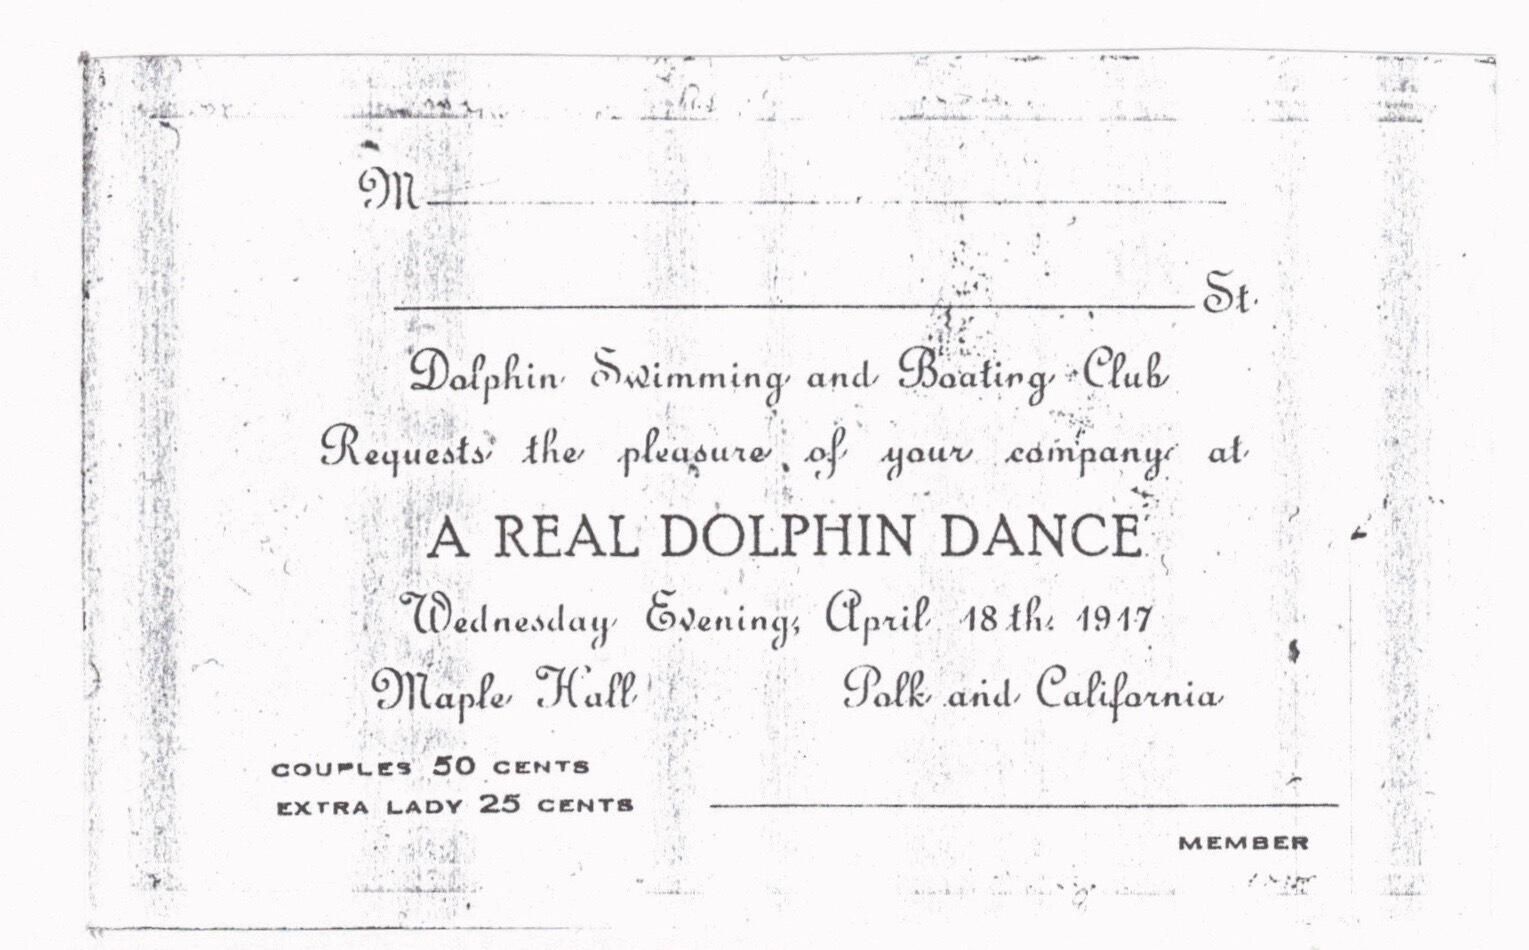 M
St.
Dolphin Swimming and Boating Club
Requests the pleasure of your company at
A REAL DOLPHIN DANCE
Wednesday Evening, April 18th. 1917
Maple Hall Polk and California
COUPLES 50 CENTS
EXTRA LADY 25 CENTS
MEMBER